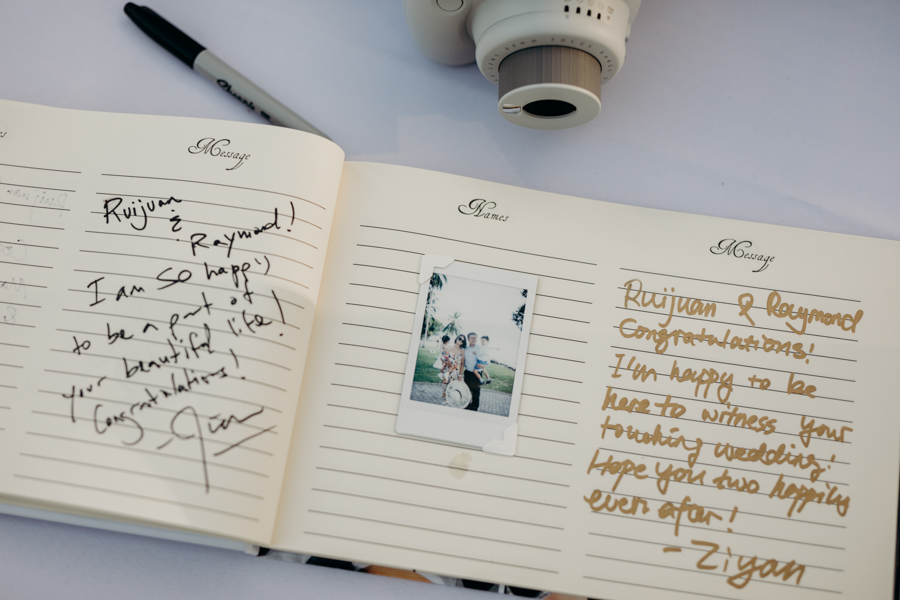 Sharpie
Message
Ruijuan
&
Raymond!
I am so happy
to be a part of
your beautiful life!
Congratulations!
Names
Message
Ruijuan & Raymond
Congratulations!
I'm happy to be
here to witness your
touching wedding!
Hope you two happily
ever after!
- Ziyan